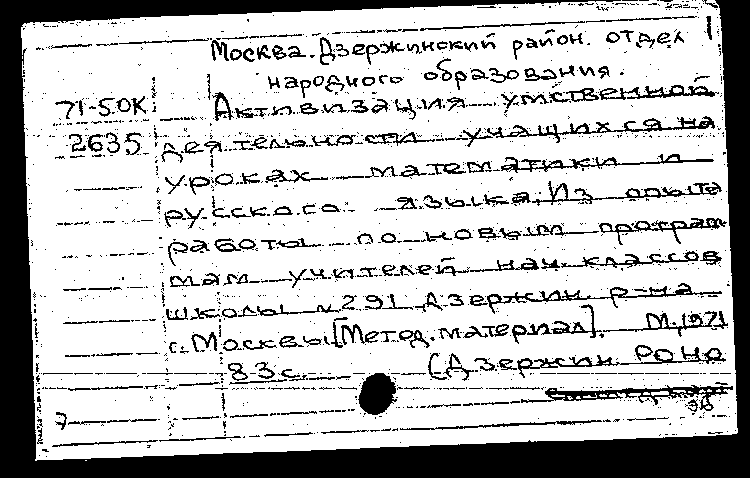 Москва. Дзержинский район. отдел
народного образования.
71-50К Активизация умственной
2635 деятельности учащихся на
уроках математики и
русского языка. Из опыта
работы по новым програм
мам учителей нач. классов
школы N 291 Дзержин. р-на
г. Москвы [Метод. материал]. М, 1971
83 с. (Дзержин РОНО
7